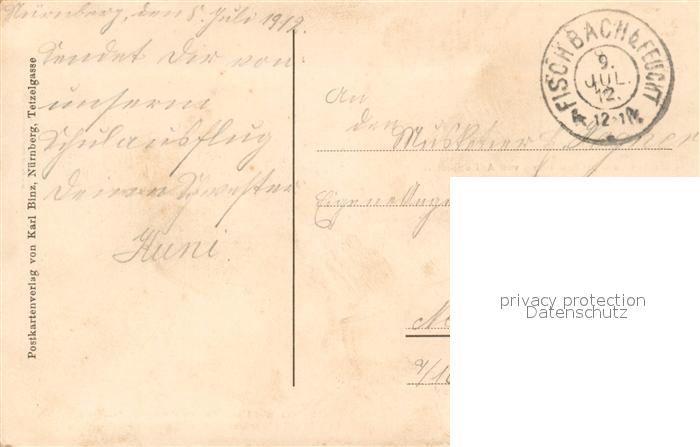 Nürnberg, den 5. Juli 1912.
Sendet Dir von
unserm
Schulausflug
Deine Schwester
Kuni.
Postkartenverlag von Karl Binz, Nürnberg, Tetzelgasse
FISCHBACH b. FEUCHT
9.
JUL.
12.
12-1N.
An
den
Musketier
Eigene
privacy protection
Datenschutz